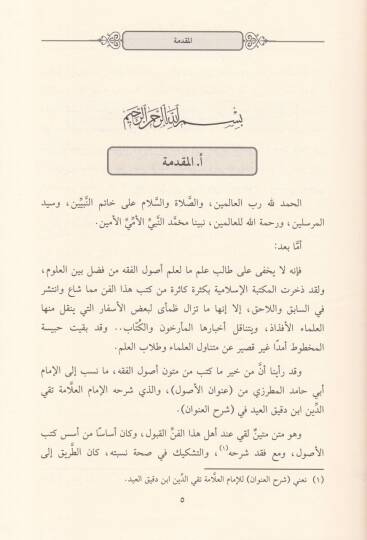 المقدمة
بسم الله الرحمن الرحيم
أ. المقدمة
الحمد لله رب العالمين، والصَّلاة والسَّلام على خاتم النَّبيِّين، وسيد
المرسلين، ورحمة الله للعالمين، نبينا محمَّد النَّبيِّ الأمِّيِّ الأمين.
أمَّا بعد:
فإنه لا يخفى على طالب علم ما لعلم أصول الفقه من فضل بين العلوم،
ولقد ذخرت المكتبة الإسلامية بكثرة كاثرة من كتب هذا الفن مما شاع وانتشر
في السابق واللاحق، إلا إنها ما تزال ظمأى لبعض الأسفار التي ينقل منها
العلماء الأفذاذ، ويتناقل أخبارها المأرخون والكُتَّاب.. وقد بقيت حبيسة
المخطوط أمدًا غير قصير عن متناول العلماء وطلاب العلم.
وقد رأينا أنَّ من خير ما كتب من متون أصول الفقه، ما نسب إلى الإمام
أبي حامد المطرزي من (عنوان الأصول)، والذي شرحه الإمام العلَّامة تقي
الدِّين ابن دقيق العيد في (شرح العنوان).
وهو متن متينٌ لقي عند أهل هذا الفنِّ القبول، وكان أساسًا من أسس كتب
الأصول، ومع فقد شرحه(١)، والتشكيك في صحة نسبته، كان الطَّريق إلى
(١) نعني (شرح العنوان) للإمام العلَّامة تقي الدِّين ابن دقيق العيد.
٥